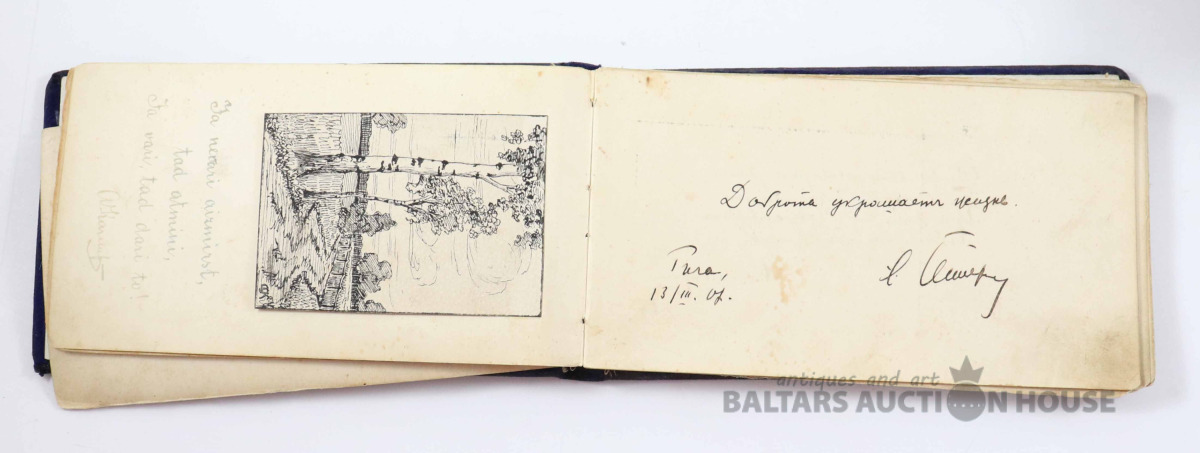 Ja nevari aizmirst,
tad atmini,
Ja vari, tad dari to!
Доброта украшаетъ жизнь.
Рига,
13/III. 07.
antiques and art
BALTARS AUCTION HOUSE